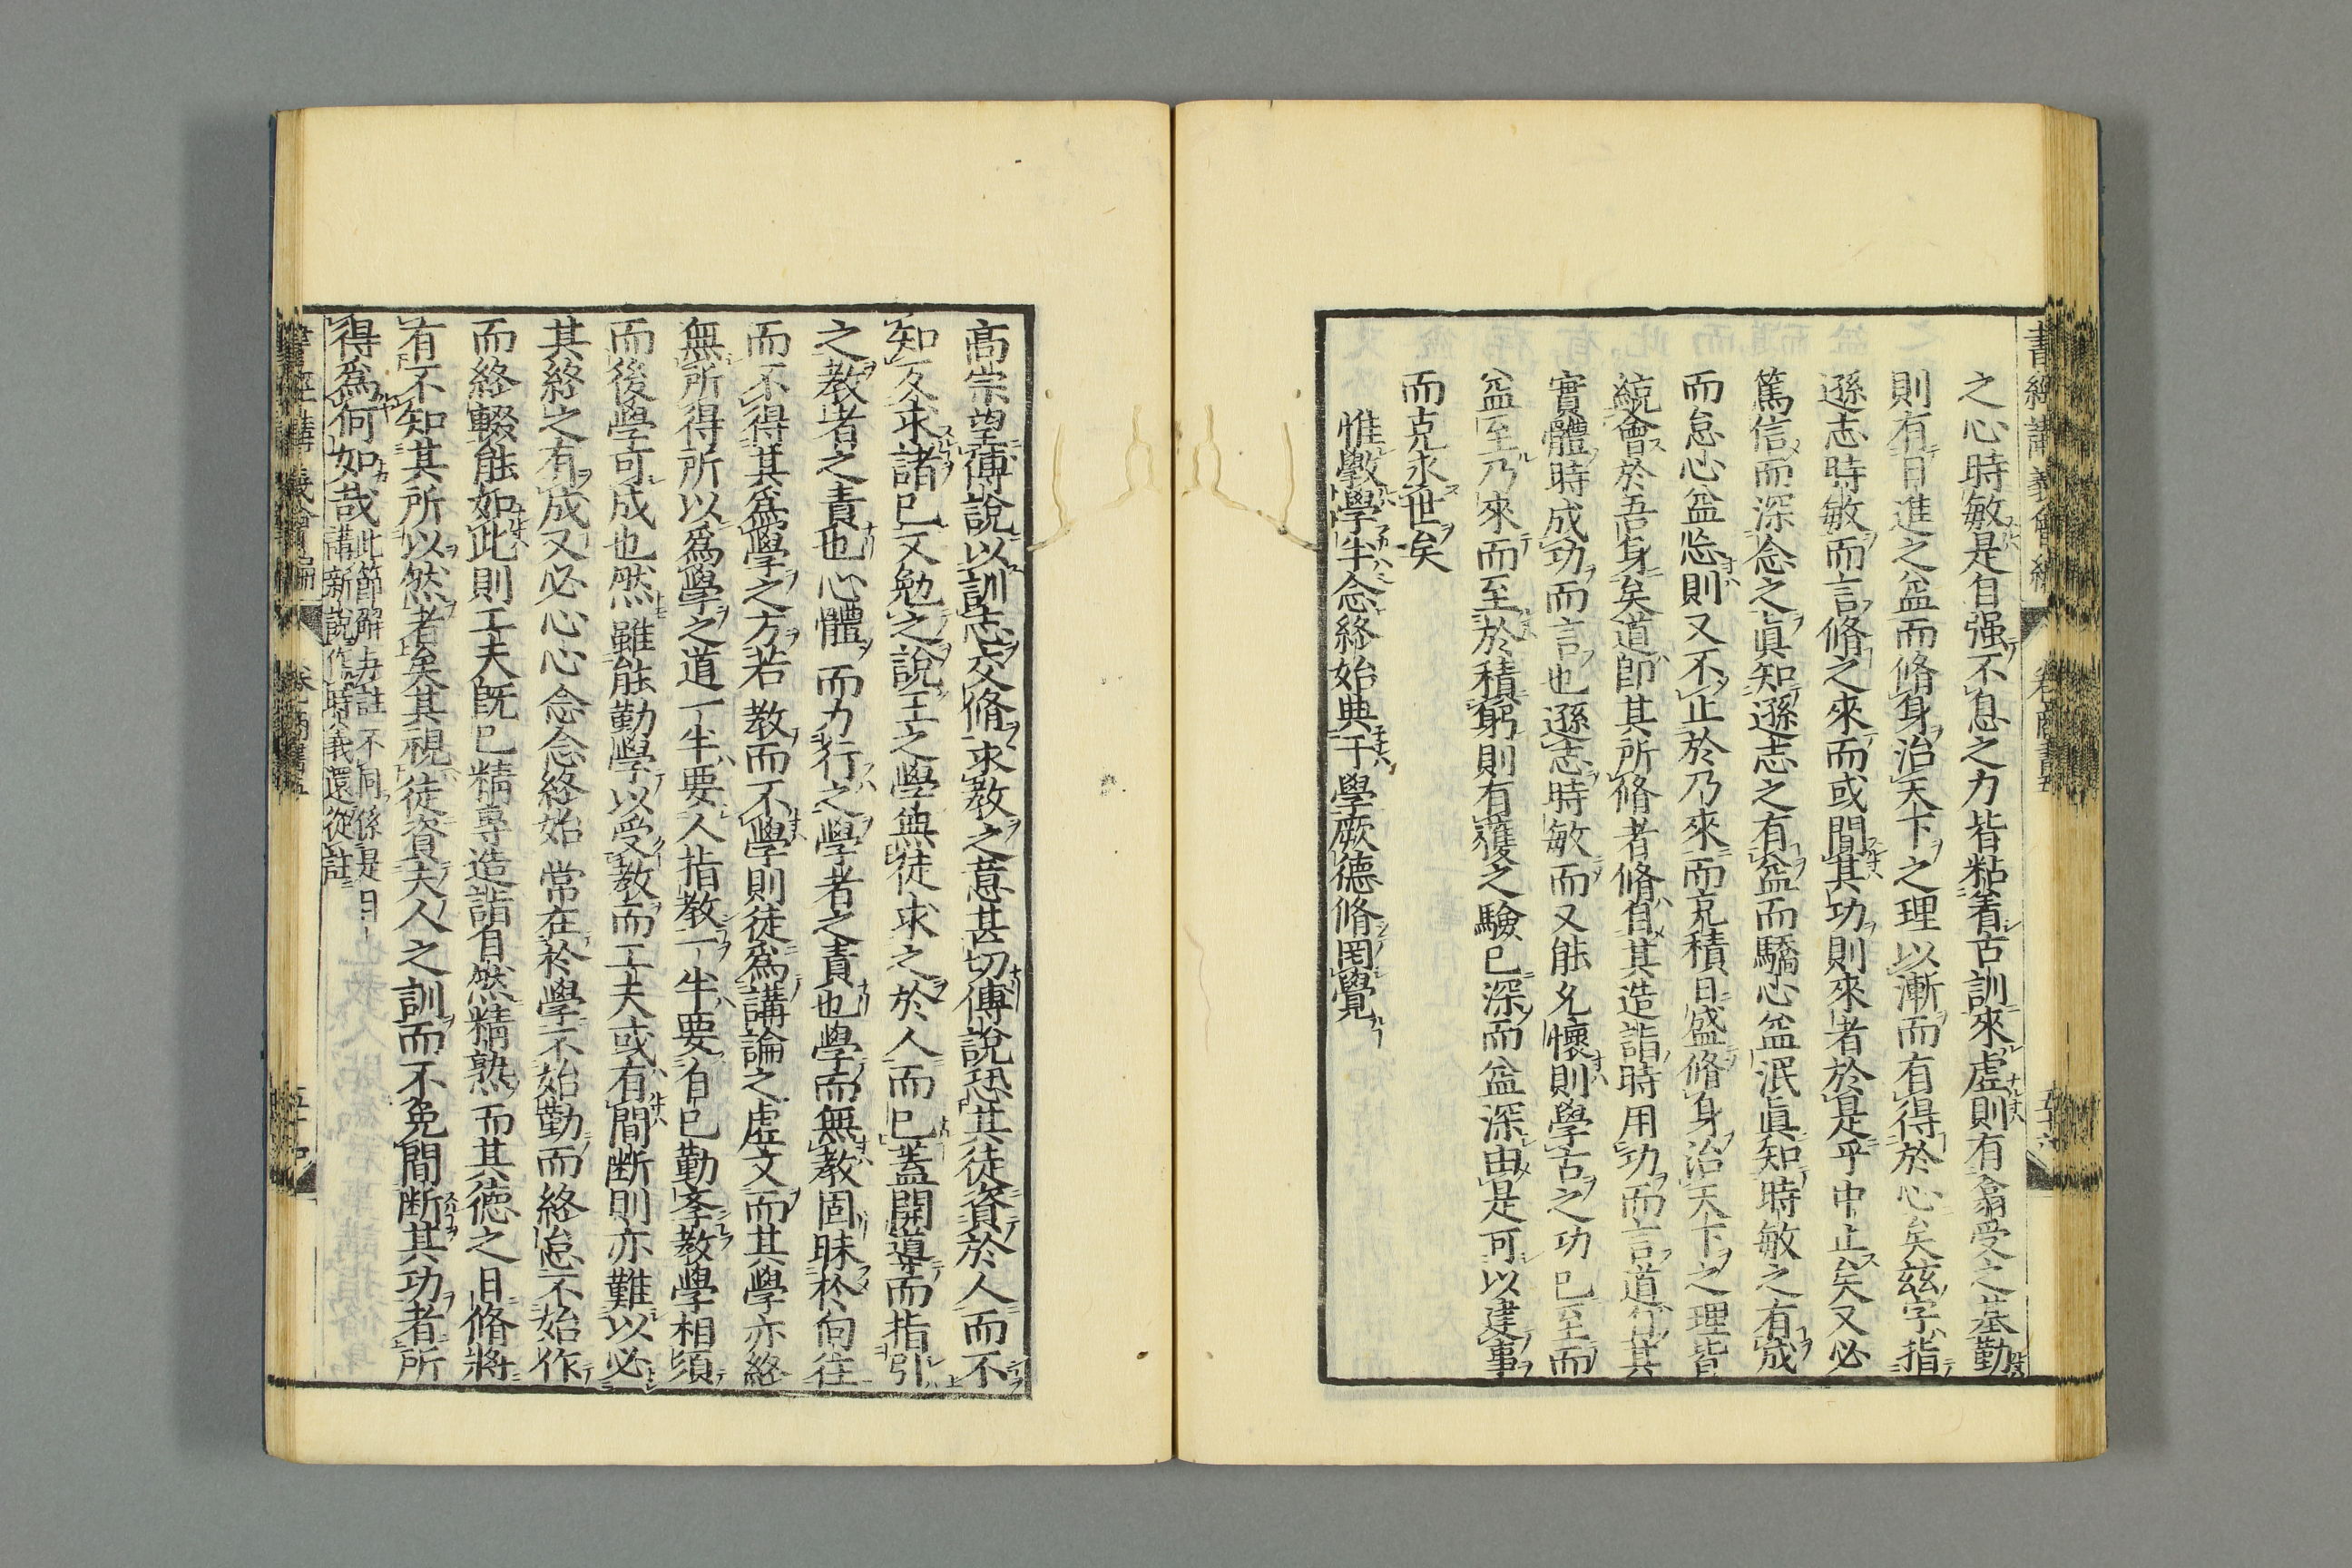 書經講義會編
卷 商書五
五十六
之心時敏是自强不息之力皆粘着古訓來虛則有翕受之基勤
則有日進之益而脩身治天下之理以漸而有得於心矣兹字指
遜志時敏而言脩之來而或間其功則來者於是乎中止矣又必
篤信而深念之眞知遜志之有益而驕心益泯眞知時敏之有成
而怠心益忘則又不止於乃來而克積日盛脩身治天下之理皆
統會於吾身矣道卽其所脩者脩自其造詣時用功而言道自其
實體時成功而言也遜志時敏而又能允懷則學古之功已至而
益至乃來而至於積躬則有獲之驗已深而益深由是可以建事
而克永世矣
惟斆學半念終始典于學厥德脩罔覺
高宗望傅說以訓志交脩求教之意甚切傅說恐其徒資於人而不
知反求諸已又勉之說王之學無徒求之於人而已蓋開導而指引
之教者之責也心體而力行之學者之責也學而無教固昧於向往
而不得其爲學之方若教而不學則徒爲講論之虛文而其學亦終
無所得所以爲學之道一半要人指教一半要自已勤孝教學相須
而後學可成也然雖能勤學以受教而工夫或有間断則亦難以必
其終之有成又必心心念念終始常在於學不始勤而終怠不始作
而終輟能如此則工夫旣已精專造詣自然精熟而其德之日脩將
有不知其所以然者矣其視徒資夫人之訓而不免間断其功者所
得爲何如哉此節解与註不同係是日
講新說作時義還從註
書經講義會編